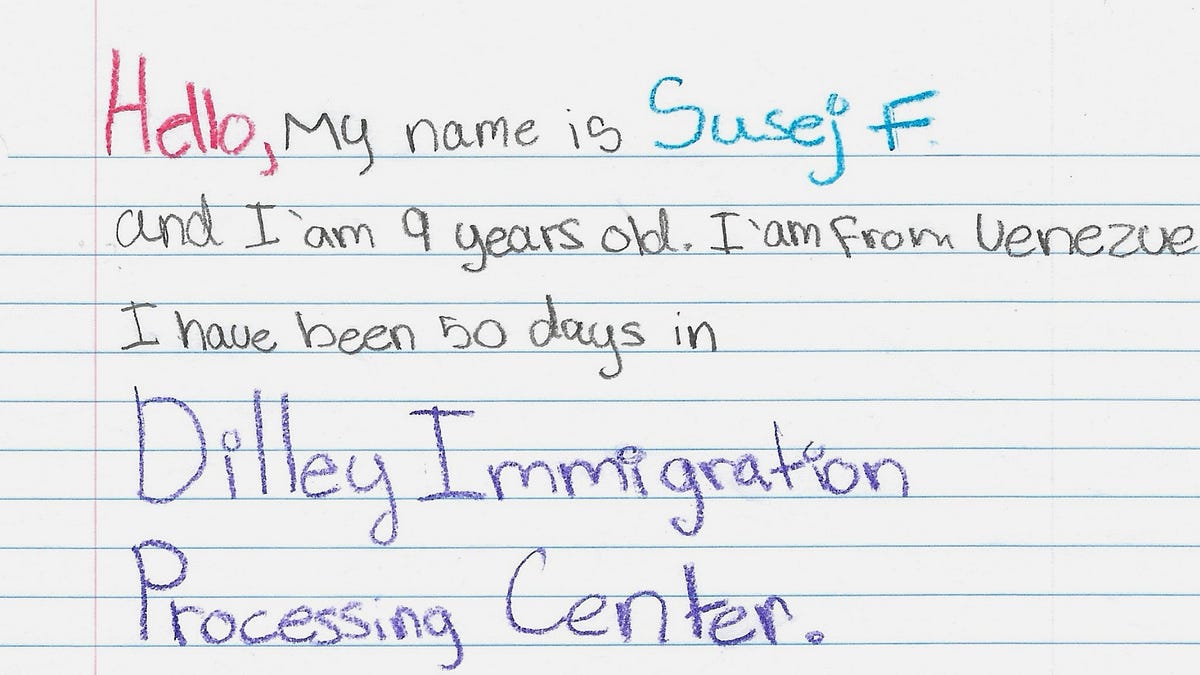 Hello, My name is Susej F.
and I'am 9 years old. I'am From Venezue
I have been 50 days in
Dilley Immigration
Processing Center.